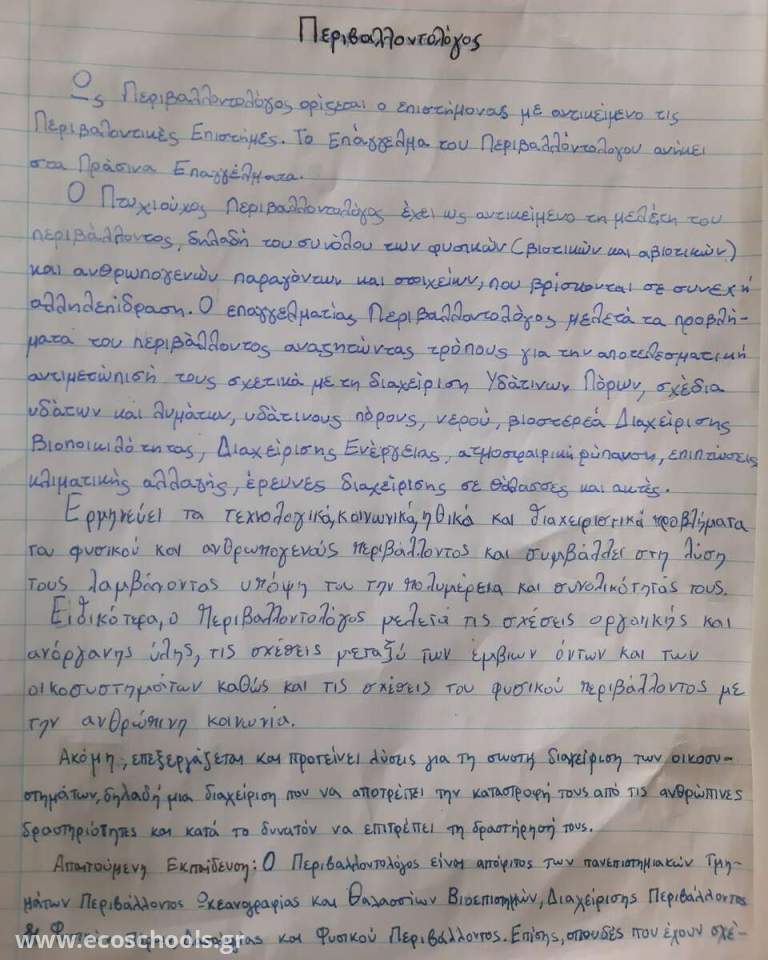 Περιβαλλοντολόγος
Ως Περιβαλλοντολόγος ορίζεται ο επιστήμονας με αντικείμενο τις
Περιβαλοντικές Επιστήμες. Το Επάγγελμα του Περιβαλλόντολογου ανήκει
στα Πράσινα Επαγγέλματα.
Ο Πτυχιούχος Περιβαλλοντολόγος έχει ως αντικείμενο τη μελέτη του
περιβάλλοντος, δηλαδή του συνόλου των φυσικών (βιοτικών και αβιοτικών)
και ανθρωπογενών παραγόντων και στοιχείων, που βρίσκονται σε συνεχή
αλληλεπίδραση. Ο επαγγελματίας Περιβαλλοντολόγος μελετά τα προβλή-
ματα του περιβάλλοντος αναζητώντας τρόπους για την αποτελεσματική
αντιμετώπισή τους σχετικά με τη διαχείριση Υδάτινων Πόρων, σχέδια
υδάτων και λυμάτων, υδάτινους πόρους, νερού, βιοστερεά Διαχείρισης
Βιοποικιλότητας, Διαχείρισης Ενέργειας, ατμοσφαιρική ρύπανση, επιπτώσεις
κλιματικής αλλαγής, έρευνες διαχείρισης σε θάλασσες και ακτές.
Ερμηνεύει τα τεχνολογικά, κοινωνικά, ηθικά και διαχειριστικά προβλήματα
του φυσικού και ανθρωπογενούς περιβάλλοντος και συμβάλλει στη λύση
τους λαμβάνοντας υπόψη του την πολυμέρεια και συνολικότητάς τους.
Ειδικότερα, ο Περιβαλλοντολόγος μελετά τις σχέσεις οργανικής και
ανόργανης ύλης, τις σχέσεις μεταξύ των έμβιων όντων και των
οικοσυστημάτων καθώς και τις σχέσεις του φυσικού περιβάλλοντος με
την ανθρώπινη κοινωνία.
Ακόμη, επεξεργάζεται και προτείνει λύσεις για τη σωστή διαχείριση των οικοσυ-
στημάτων, δηλαδή μια διαχείριση που να αποτρέπει την καταστροφή τους από τις ανθρώπινες
δραστηριότητες και κατά το δυνατόν να επιτρέπει τη δραστήρησή τους.
Απαιτούμενη Εκπαίδευση: Ο Περιβαλλοντολόγος είναι απόφοιτος των πανεπιστημιακών Τμη-
μάτων Περιβάλλοντος Ωκεανογραφίας και Θαλασσίων Βιοεπιστημών, Διαχείρισης Περιβάλλοντος
και Φυσικού Περιβάλλοντος. Επίσης, σπουδές που έχουν σχέ-
www.ecoschools.gr